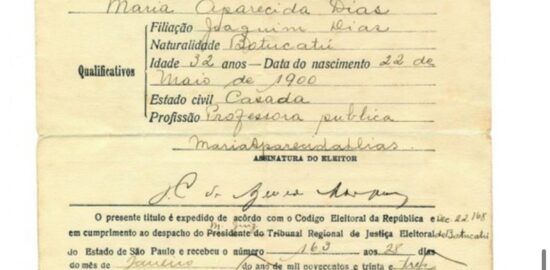 Maria Aparecida Dias
Filiação Joaquim Dias
Naturalidade Botucatú
Qualificativos
Idade 32 anos — Data do nascimento 22 de
Maio de 1900
Estado civil Casada
Profissão Professora publica
Maria Aparecida Dias
ASSINATURA DO ELEITOR
O presente titulo é expedido de acôrdo com o Codigo Eleitoral da República e
em cumprimento ao despacho do Presidente do Tribunal Regional de Justiça Eleitoral de Botucatú
do Estado de São Paulo e recebeu o número 163 aos 28 dias
do mês de Janeiro do ano de mil novecentos e trinta e tres